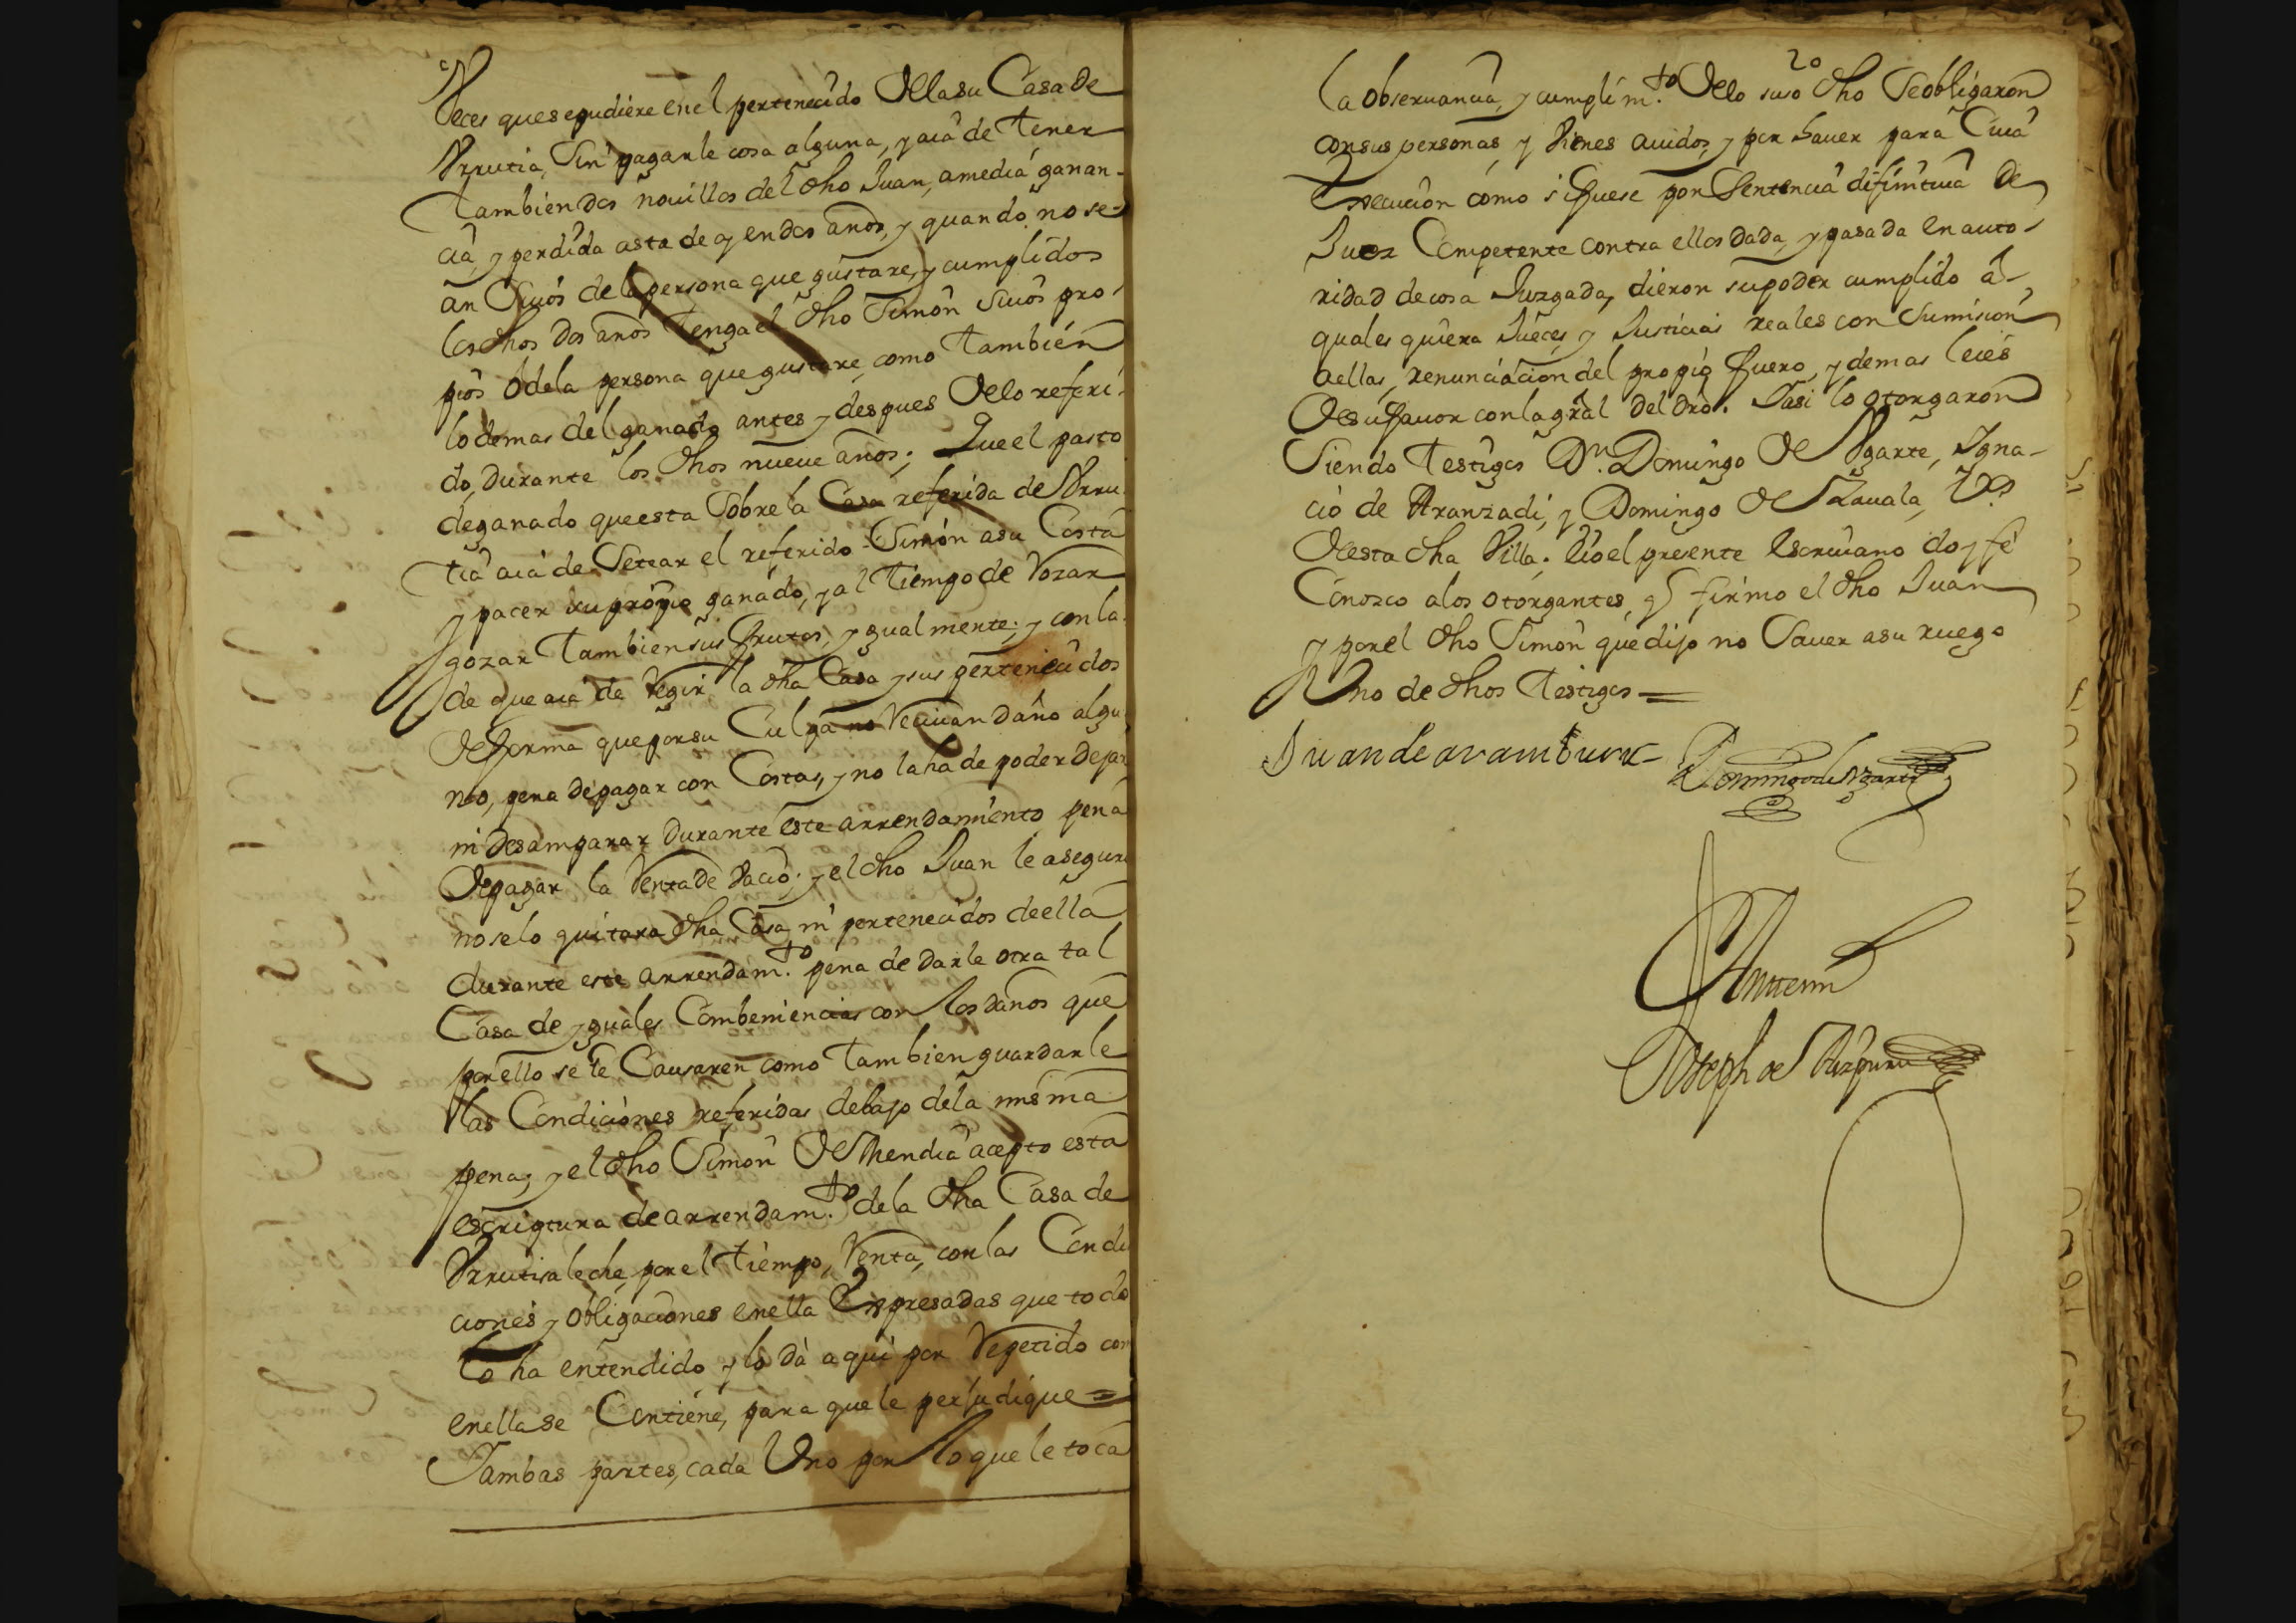 Veces que se pudiere en el pertenecido de la su Casa de
Vrrutia, sin pagarle cosa alguna, y aia de tener
tambien dos nouillos del dho Juan, a media ganan-
cia, y perdida asta de oy en dos años, y quando no se-
an suios de la persona que gustare, y cumplidos
los dhos dos años tenga el dho Simon suios pro-
pios o de la persona que gustare, como tambien
lo demas del ganado antes y despues de lo referi-
do, durante los dhos nueue años; Que el pasto
de ganado que esta sobre la Casa referida de Vrru-
tia aia de setear el referido Simon a su Costa
y pacer su propio ganado, y al tiempo de rozar
gozar tambien sus frutos, ygualmente; y con la
de que aia de regir la dha Casa y sus pertenecidos
de forma que por su Culpa no reciuan daño algu-
no, pena de pagar con Costas, y no la ha de poder dejar
ni desamparar durante este arrendamiento pena
de pagar la renta de vacio; y el dho Juan le asegura
no se lo quitara dha Casa ni pertenecidos de ella
durante este arrendam.to pena de darle otra tal
Casa de yguales Combeniencias con los daños que
por ello se le Causaren como tambien guardarle
las Condiciones referidas debajo de la misma
pena, y el dho Simon de Mendia acepto esta
escriptura de arrendam.to de la dha Casa de
Vrrutia leche, por el tiempo, renta, con las Condi
ciones y obligaciones en ella Expresadas que todo
lo ha entendido y lo dà aqui por repetido com
en ella se Contiene, para que le perjudique =
Yambas partes, cada Uno por lo que le toca
20
la obseruancia, y cumplim.to de lo suso dho se obligaron
con sus personas y vienes auidos, y por hauer para Cuia
Execucion como si fuese por sentencia difinitiua de
Juez Competente contra ellos dada, y pasada en auto-
ridad de cosa Juzgada, dieron su poder cumplido a-
quales quiera Jueces y Justicias reales con sumision
a ellas, renunciacion del propio fuero, y demas leies
de su fauor con la gral del dro. Yasi lo otorgaron
siendo testigos Dn. Domingo de Vgarte, Igna-
cio de Aranzadi, y Domingo de Zauala, Vos
de esta dha Villa; Eio el presente escriuano doy fe
Conozco a los otorgantes, y firmo el dho Juan
y por el dho Simon que dijo no Sauer a su ruego
Uno de dhos testigos =
Juan de aramburu
Domingo de Vgarte
Ante mi
Joseph de Aizpuru